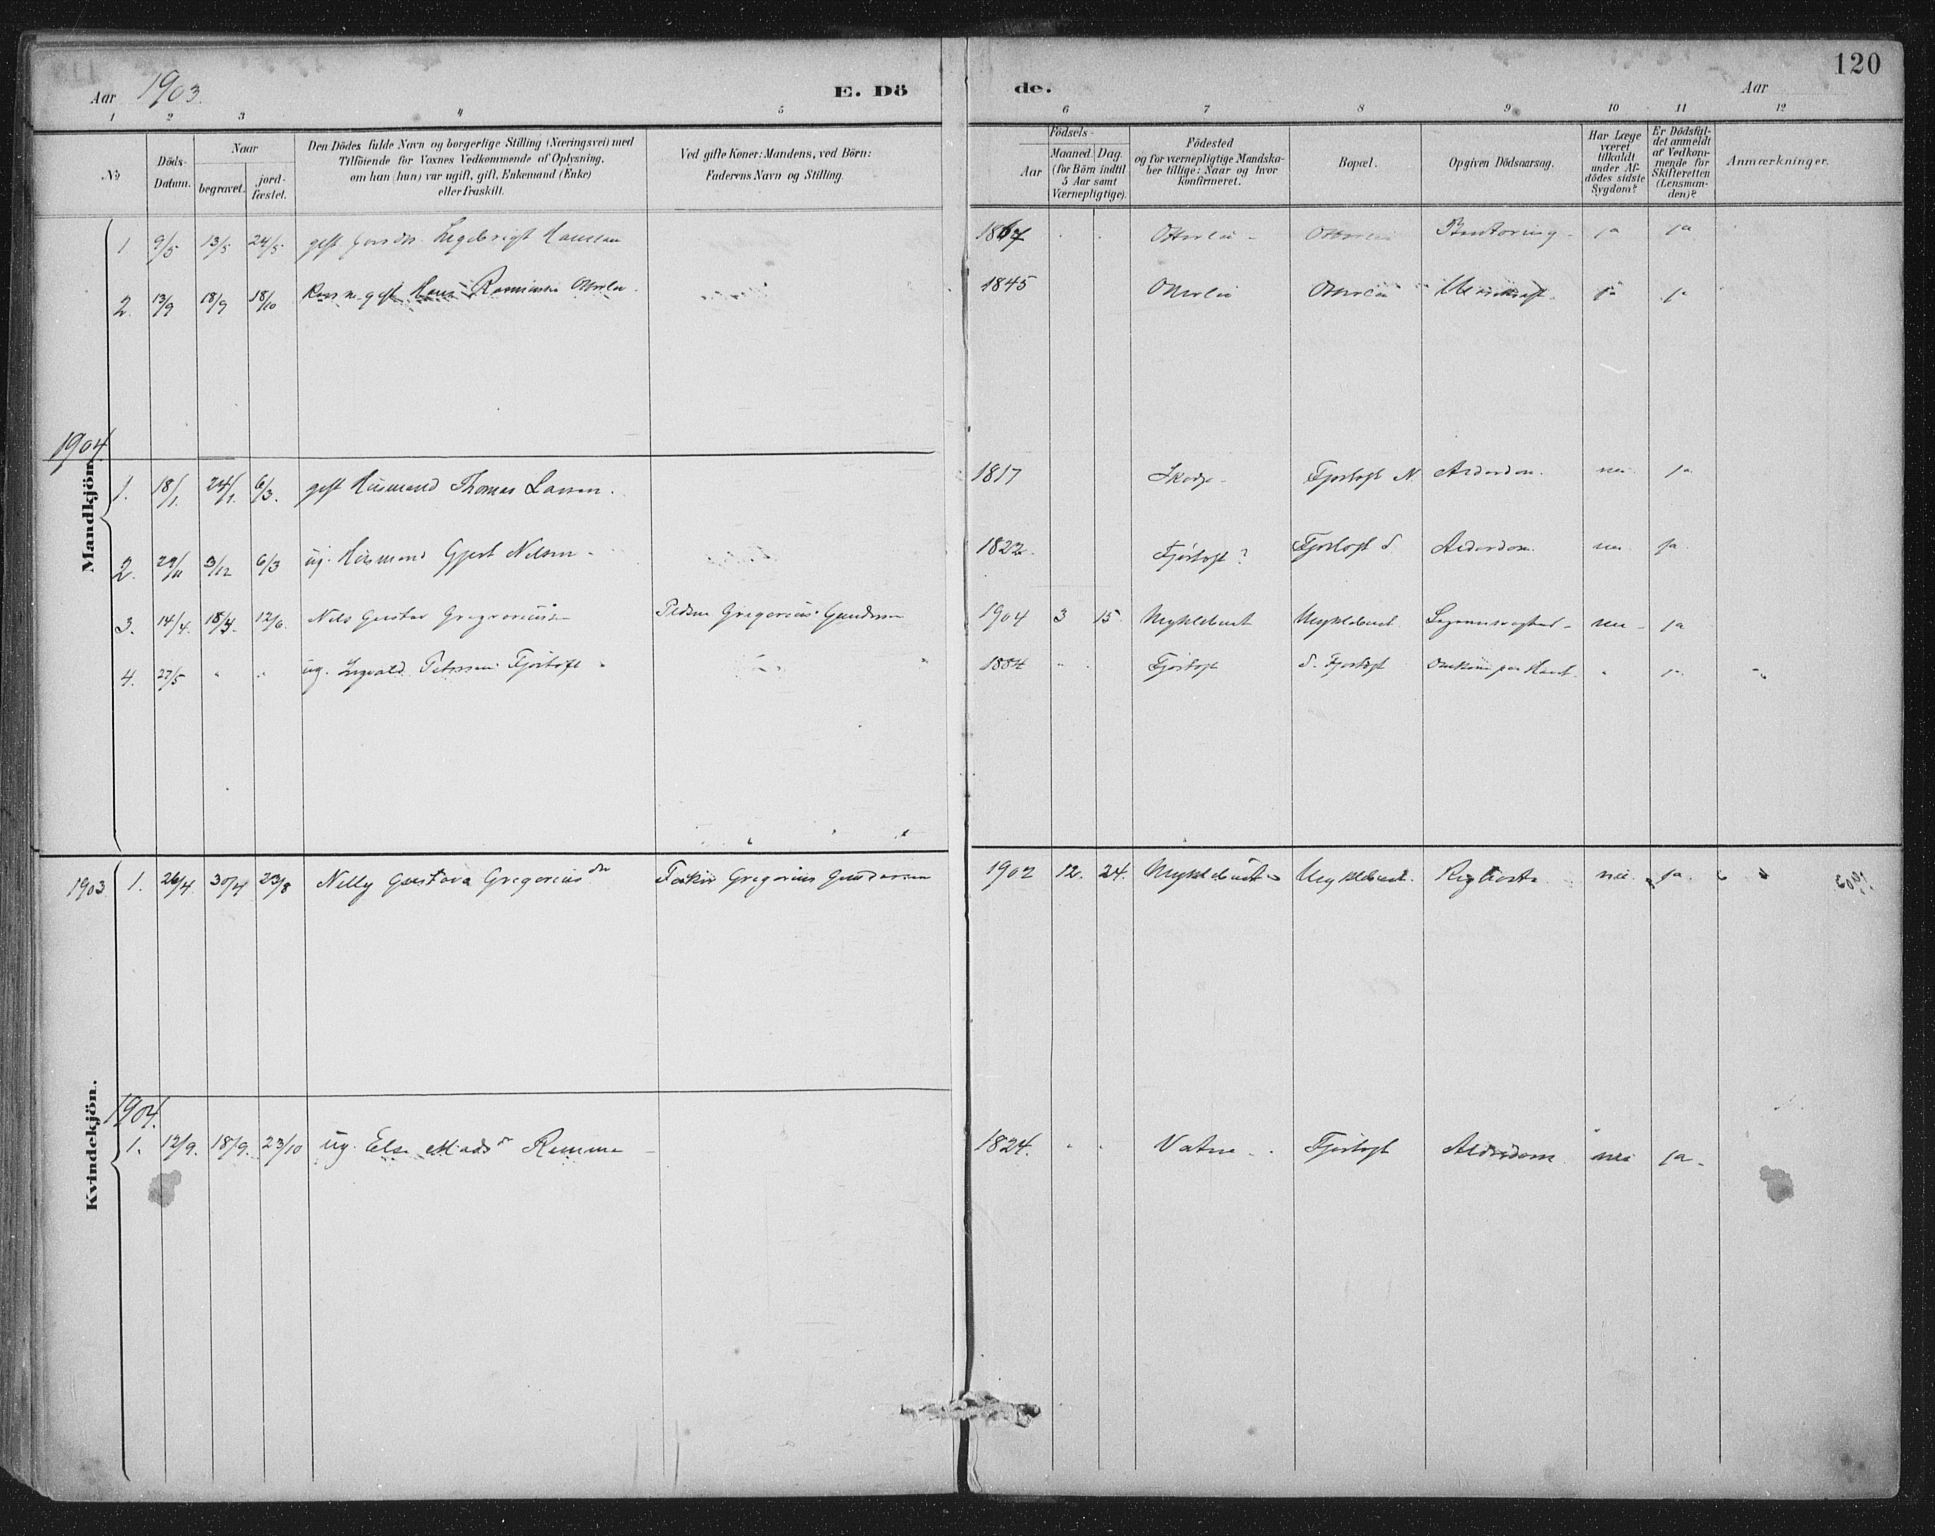 120
Aar 1903.
E. Dö
de.
Aar
1 2 3 4 5 6 7 8 9 10 11 12
No
Döds-Datum.
Naar
begravet.
jord-fæstet.
Den Dödes fulde Navn og borgerlige Stilling (Næringsvei) med
Tilföiende for Voxnes Vedkommende af Oplysning,
om han (hun) var ugift, gift, Enkemand (Enke)
eller fraskilt.
Ved gifte Koner: Mandens, ved Börn:
Faderens Navn og Stilling.
Födsels-
Aar
Maaned. Dag.
(for Börn indtil
5 Aar samt
Værnepligtige).
Födested
og for værnepligtige Mandska-
ber tillige: Naar og hvor
konfirmeret.
Bopæl.
Opgiven Dödsaarsag.
Har Læge
været
tilkaldt
under Af-
dödes sidste
Sygdom?
Er Dödsfal-
det anmeldt
af Vedkom-
mende for
Skifteretten
(Lensman-
den)?
Anmærkninger.
Mandkjön.
1 9/5 13/5 24/5 gift Hansen 1867 Otterlei Otterlei ja ja
2. 13/9 18/9 18/10 gift Hans Rasmussen Otterlei 1845 Otterlei Otterlei ja ja
1904
1. 18/1. 24/1. 6/3. gift Husmand Thomas Larsen. 1817 Skodje Fjørtoft N. Alderdom. nei ja
2. 29/11 3/12 6/3 ug. Husmand Gjert Nilsen 1822. Fjørtoft? Fjørtoft S. Alderdom. nei ja
3. 14/4. 18/4. 12/6. Nils Gustav Gregoriussen Gregorius Gundersen 1904 3 15. Myklebust Myklebust nei ja
4. 27/5 " " ug. Ingvald Petersen Fjørtoft 1884 " Fjørtoft S. Fjørtoft Omkom paa Havet. " ja
Kvindekjön.
1903 1. 26/4. 30/4 23/8 Nelly Gustava Gregoriusdr Fisker Gregorius Gundersen 1902 12. 24. Myklebust Myklebust. Kighoste nei ja.
1904.
1. 12/9. 18/9. 23/10 ug. Else Madsdr Remme 1824. " Vatne Fjørtoft Alderdom nei ja.